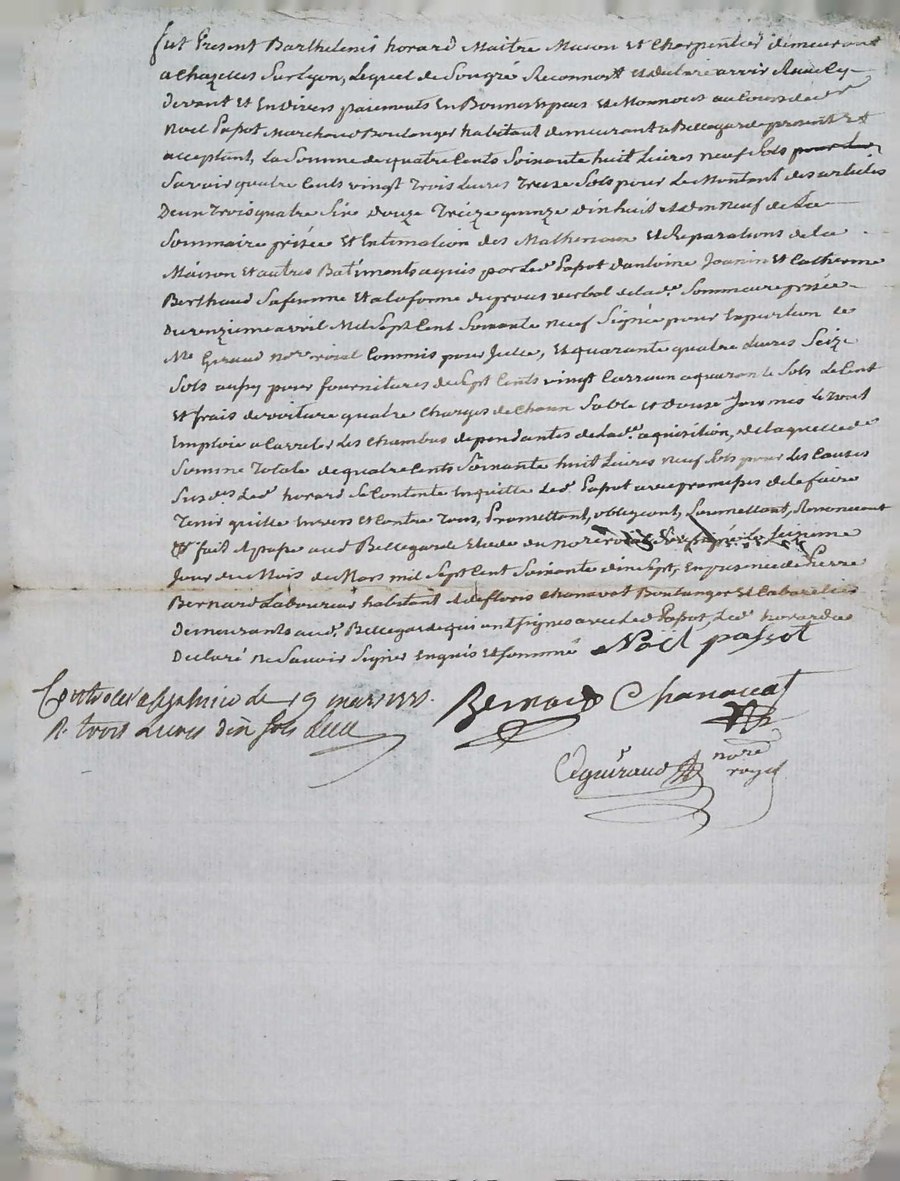 fut Present Barthelemis horard Maitre Mason et Charpentier demeurant
a Chazelles sur Lyon, Lequel de Son gré Reconnoit et declare avoir Recu Cy
devant et En divers paiements En Bonnes Especes et Monnois au Cours de sr
Noel Papot Marchand Boulanger habitant demeurant a Bellegarde present et
acceptant, la Somme de quatre Cents Soixante huit Livres neuf Sols
Savoir quatre Cents vingt Trois Livres Treize Sols pour Le Montant des articles
Deux Trois quatre Six douze Treize quinze dixhuit et dix neuf de La
Sommaire prisée Et Estimation des Matheriaux Et Reparations de la
Maison et autres Batiments aquis par Led. Papot d'antoine Joanin Et Catherine
Berthaud Sa femme Et a la forme du proces verbal de lad.e Sommaire prisée
Du onzieme avril Mil Sept Cent Soixante neuf Signée pour Expedition
Me Giraud nore roial Commis pour Icelle, Et quarante quatre Livres Seize
Sols aussy pour fournitures de Sept Cents vingt Carraux a quarante Sols Le Cent
Et frais de voiture quatre Charges de Chaux Sable et douze Journées
Emploié a Carreler Les Chambres dependantes de Lad.e aquisition, de laquelle de
Somme Totale de quatre Cents Soixante huit Livres neuf Sols pour Les Causes
Susd.es Led. horard Se Contente En quitte Led. Papot avec promesses de le faire
Tenir quitte Envers et Contre Tous, Promettant, obligeant, Soumettant, Renoncant
fait et passé aud Bellegarde Etude du nore roial Soussigné Le Seizieme
Jour du Mois de Mars mil Sept Cent Soixante dix Sept, En presence de Pierre
Bernard Laboureur habitant et de floris Chanavat Boulanger Et Cabaretier
Demeurants aud. Bellegarde qui ont signes avec Led Papot, Led. horard a
Declaré ne Savoir Signer Enquis Et Sommé Noël passot
Controlé a St galmier le 19 mars 1777. Bernard Chanavat
R. trois Livres dix Sols
Ceguiraud nore
royal